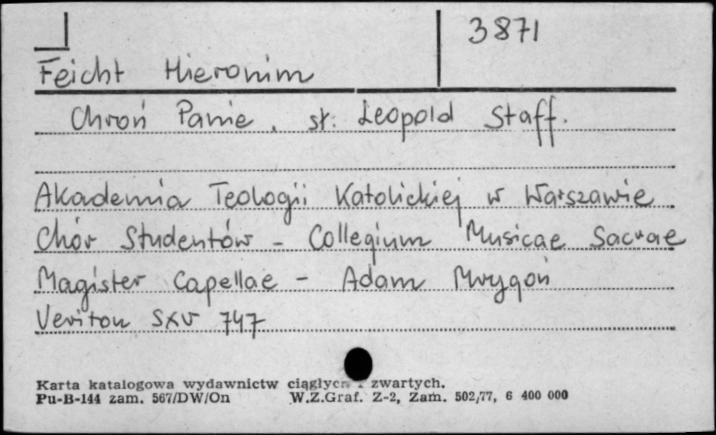 3871
Feicht Hieronim
Chroń Panie, sł. Leopold Staff.
Akademia Teologii Katolickiej w Warszawie
Chór Studentów - Collegium Musicae Sacrae
Magister Capellae - Adam Mrygoń
Veriton SXV 747
Karta katalogowa wydawnictw ciągłych i zwartych.
Pu-B-144 zam. 567/DW/On W.Z.Graf. Z-2, Zam. 502/77, 6 400 000